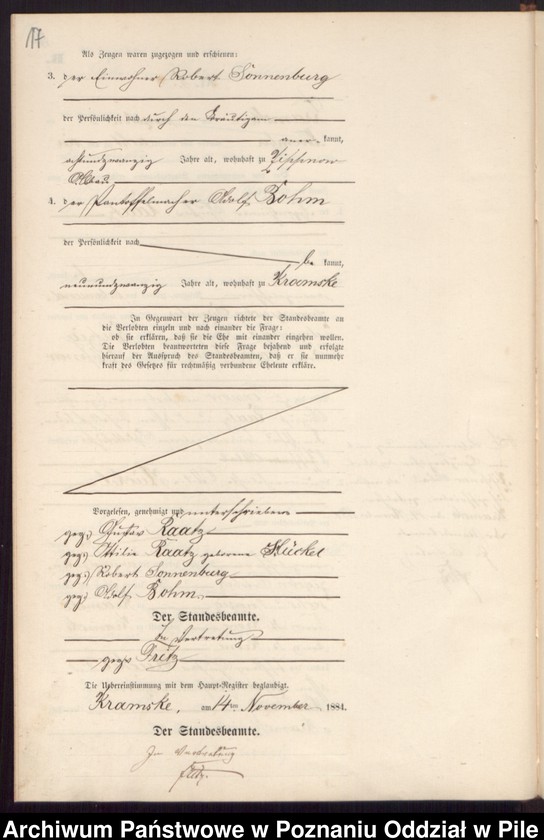 17
Als Zeugen waren zugezogen und erschienen:
3. der Einwohner Robert Sonnenburg
der Persönlichkeit nach durch den Bräutigam
aner- kannt,
achtundzwanzig Jahre alt, wohnhaft zu Zippnow
Abbau
4. der Pantoffelmacher Adolf Bohm
der Persönlichkeit nach
be kannt,
neunundzwanzig Jahre alt, wohnhaft zu Kramske
In Gegenwart der Zeugen richtete der Standesbeamte an
die Verlobten einzeln und nach einander die Frage:
ob sie erklären, daß sie die Ehe mit einander eingehen wollen.
Die Verlobten beantworteten diese Frage bejahend und erfolgte
hierauf der Ausspruch des Standesbeamten, daß er sie nunmehr
kraft des Gesetzes für rechtmäßig verbundene Eheleute erkläre.
Vorgelesen, genehmigt und unterschrieben
gez. Gustav Raatz
gez. Ottilie Raatz geborene Hückel
gez. Robert Sonnenburg
gez. Adolf Bohm
Der Standesbeamte.
In Vertretung
gez.
Die Uebereinstimmung mit dem Haupt-Register beglaubigt.
Kramske, am 14ten November 1884.
Der Standesbeamte.
In Vertretung
Archiwum Państwowe w Poznaniu Oddział w Pile